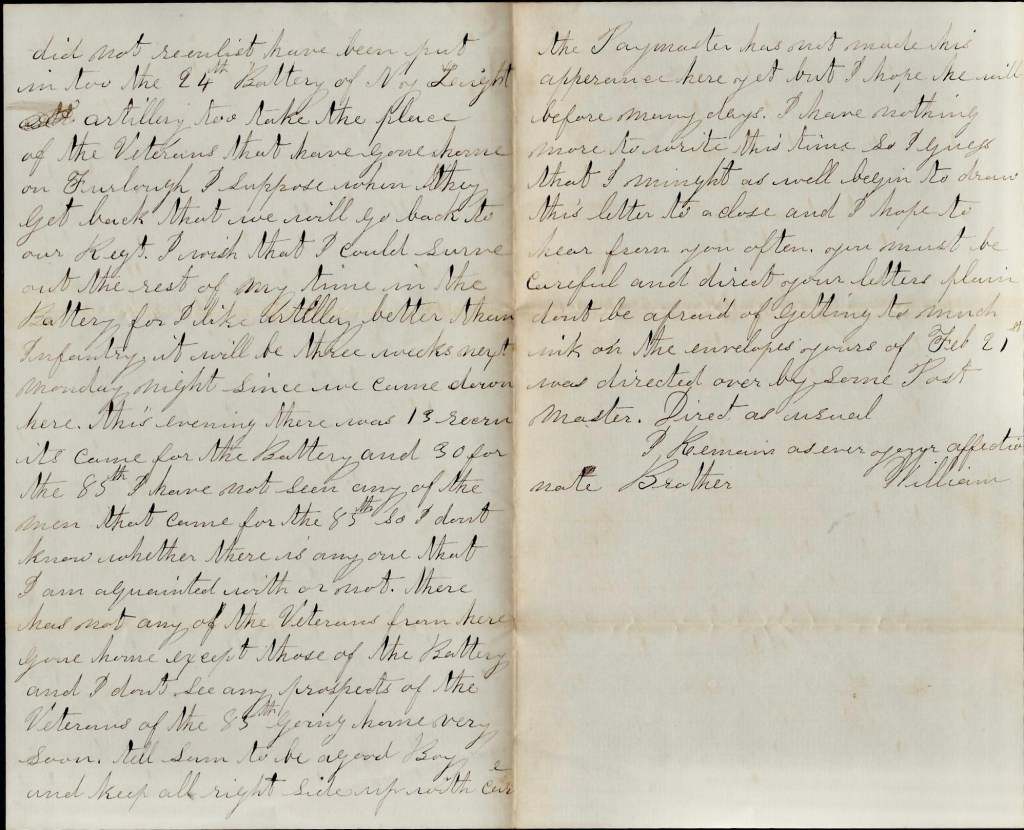 did not reenlist have been put
in too the 24th Battery of N y Leight
artillery too take the place
of the Veterans that have gone home
on Furlough I suppose when they
get back that we will go back to
our Regt. I wish that I could surve
out the rest of my time in the
Battery for I like artillery better than
Infantry it will be three weeks next
monday night since we came down
here. this evening there was 13 recru
its came for the Battery and 30 for
the 85th I have not seen any of the
men that came for the 85th so I dont
know whether there is any one that
I am aquainted with or not. there
has not any of the Veterans from here
gone home except those of the Battery
and I dont see any prospects of the
Veterans of the 85th going home very
soon. tell Sam to be a good Boy
and keep all right side up with care
the Paymaster has not made his
apperance here yet but I hope he will
before many days. I have nothing
more to write this time so I guess
that I minght as well begin to draw
this letter to a close and I hope to
hear from you often. you must be
careful and direct your letters plain
dont be afraid of getting to much
ink on the envelopes yours of Feb 21st
was directed over by some Post
master. Direct as usual
I Remain as ever your affectio
nate Brother William